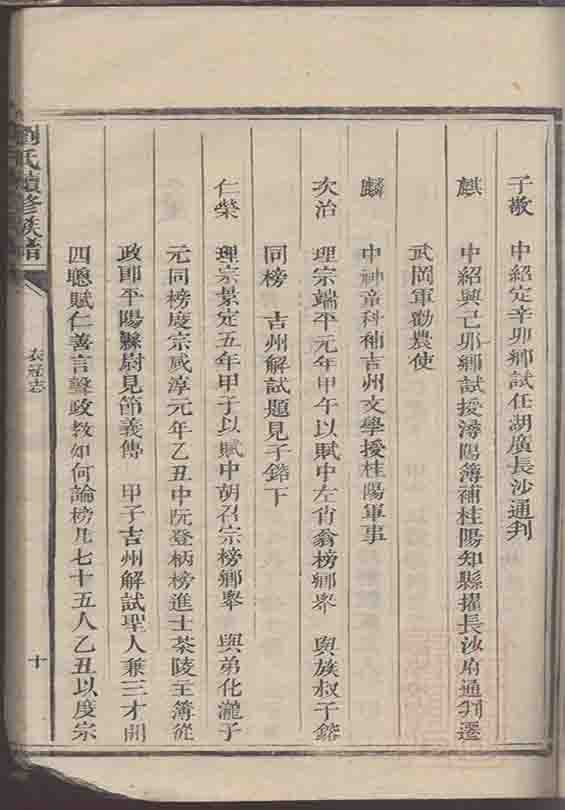 子敬 中紹定辛卯鄉試任胡廣長沙通判
麒 中紹興己卯鄉試授潯陽簿補桂陽知縣擢長沙府通判遷
武岡軍勸農使
麟 中神童科補吉州文學授桂陽軍事
次治 理宗端平元年甲午以賦中左肖翁榜鄉舉 與族叔子鎔
同榜 吉州解試題見子鎔下
仁榮 理宗景定五年甲子以賦中胡召宗榜鄉舉 與弟化瀧子
元同榜度宗咸淳元年乙丑中阮登柄榜進士茶陵主簿從
政郎平陽縣尉見節義傳 甲子吉州解試聖人兼三才開
四聰賦仁善言聲政教如何論榜凡七十五人乙丑以度宗
劉氏續修族譜
衣冠志
十